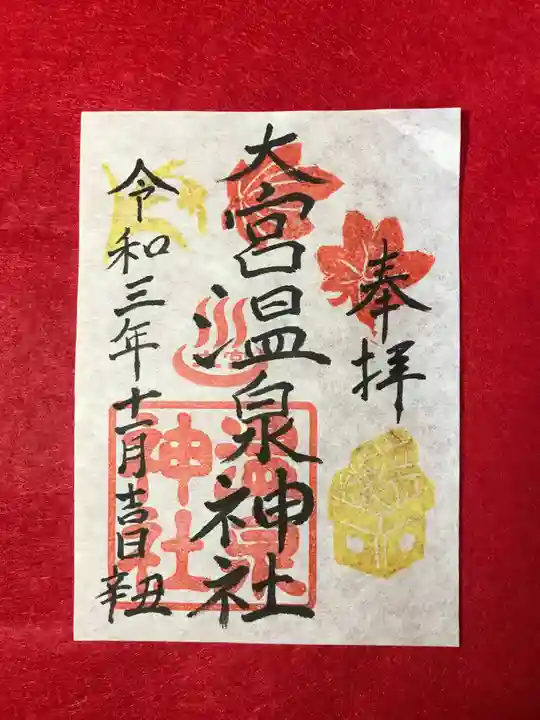 奉拝
大宮温泉神社
温泉
神社
令和三年十一月吉日
辛丑